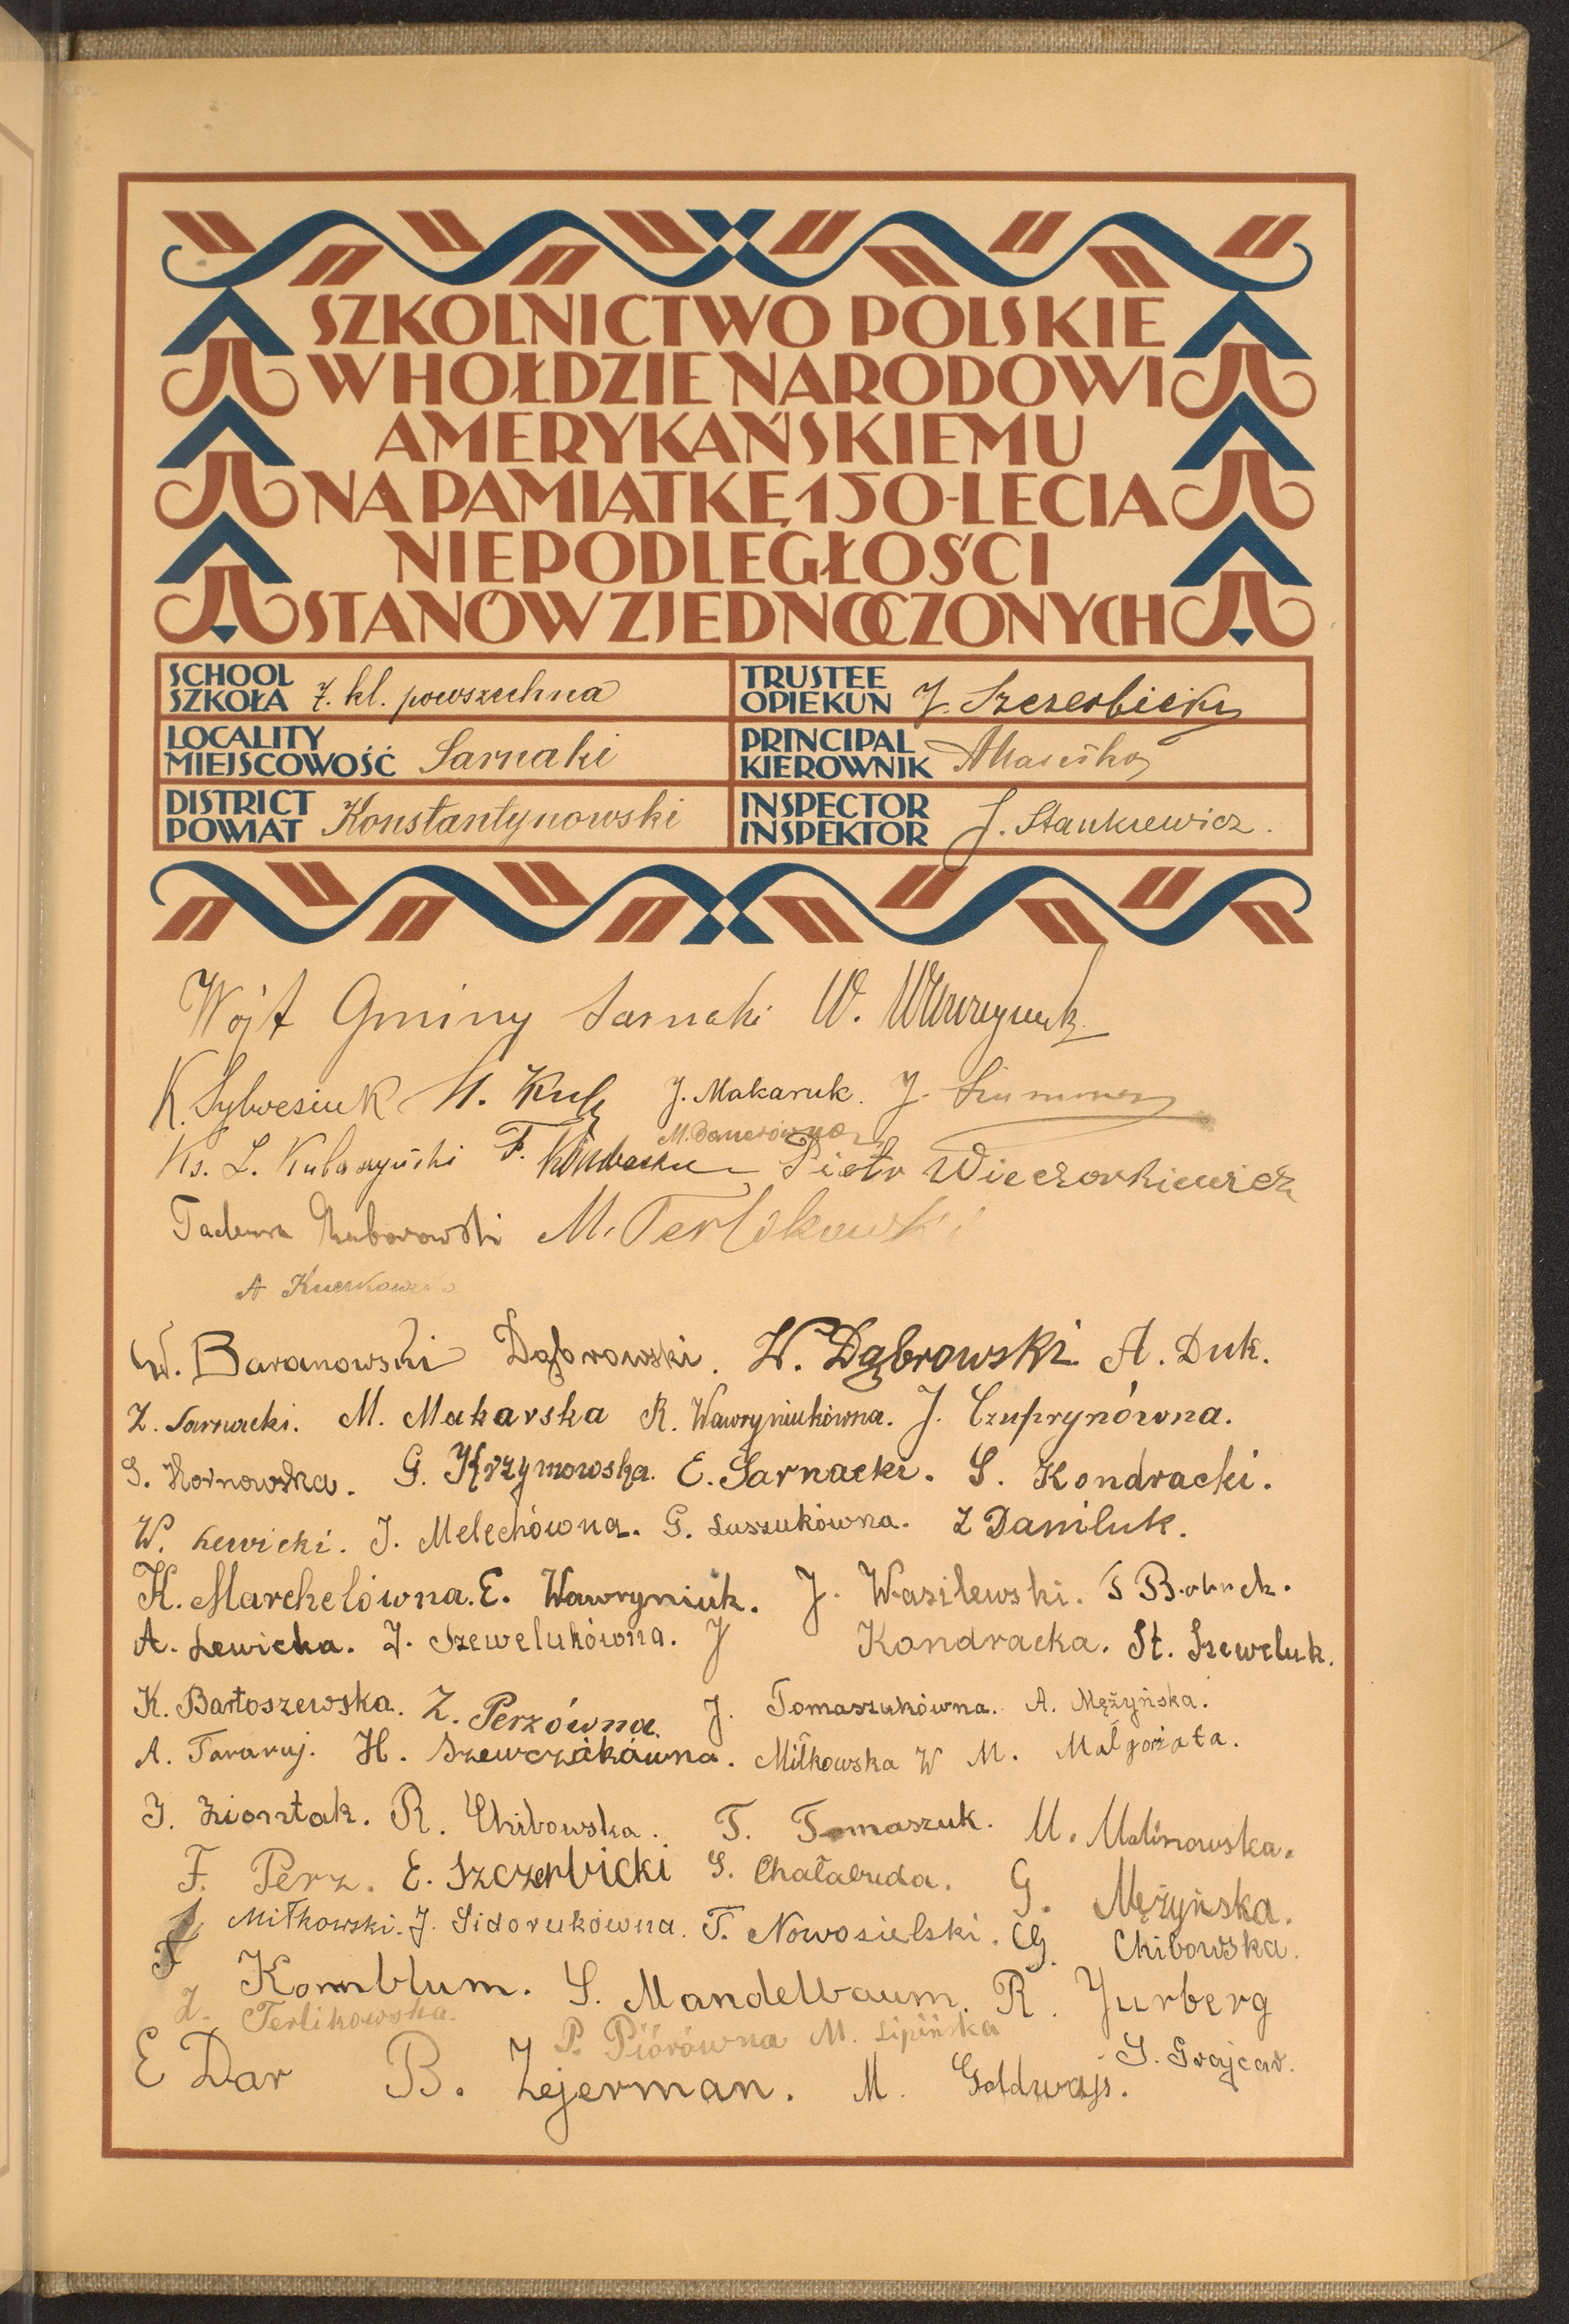 SZKOLNICTWO POLSKIE
W HOŁDZIE NARODOWI
AMERYKAŃSKIEMU
NA PAMIĄTKĘ 150-LECIA
NIEPODLEGŁOŚCI
STANÓW ZJEDNOCZONYCH
SCHOOL
SZKOŁA 7. kl. powszechna
TRUSTEE
OPIEKUN J. Szczerbicki
LOCALITY
MIEJSCOWOŚĆ Sarnaki
PRINCIPAL
KIEROWNIK
DISTRICT
POWIAT Konstantynowski
INSPECTOR
INSPEKTOR J. Stankiewicz.
Wójt Gminy Sarnaki W. Wawryniuk
K. Sylwesiuk J. Makaruk. J.
M. Danerówna
Ks. L. F. Piotr Wieczorkiewicz
Tadeusz M. Terlikowski
A
W. Baranowski Dąbrowski. W. Dąbrowski. A. Duk.
Z. Sarnacki. M. Makarska R. Wawryniukówna. J. Czuprynówna.
S. Hornowska. G. Krzymowska. E. Sarnacki. S. Kondracki.
W. Lewicki. J. Melechówna. G. Łuszukówna. Z Daniluk.
K. Marchelówna. E. Wawryniuk. J. Wasilewski. T Bobruk.
A. Lewicka. J. Szewelukówna. J Kondracka. St. Szeweluk.
K. Bartoszewska. Z. Perzówna. J. Tomaszukówna. A. Mężyńska.
A. Tararuj. H. Szewczakówna. Miłkowska W M. Małgorzata.
J. Ziontak. R. Chibowska. T. Tomaszuk. M. Malinowska.
F. Perz. E. Szczerbicki S. Chałabuda. G. Mężyńska.
Miłkowski. J. Sidorukówna. T. Nowosielski. G. Chibowska.
F Kornblum. S. Mandelbaum. R. Jurberg
Z. Terlikowska. P. Piórówna M. Lipińska
E Dar B. Zejerman. M. Goldwajs. S. Grajcar.